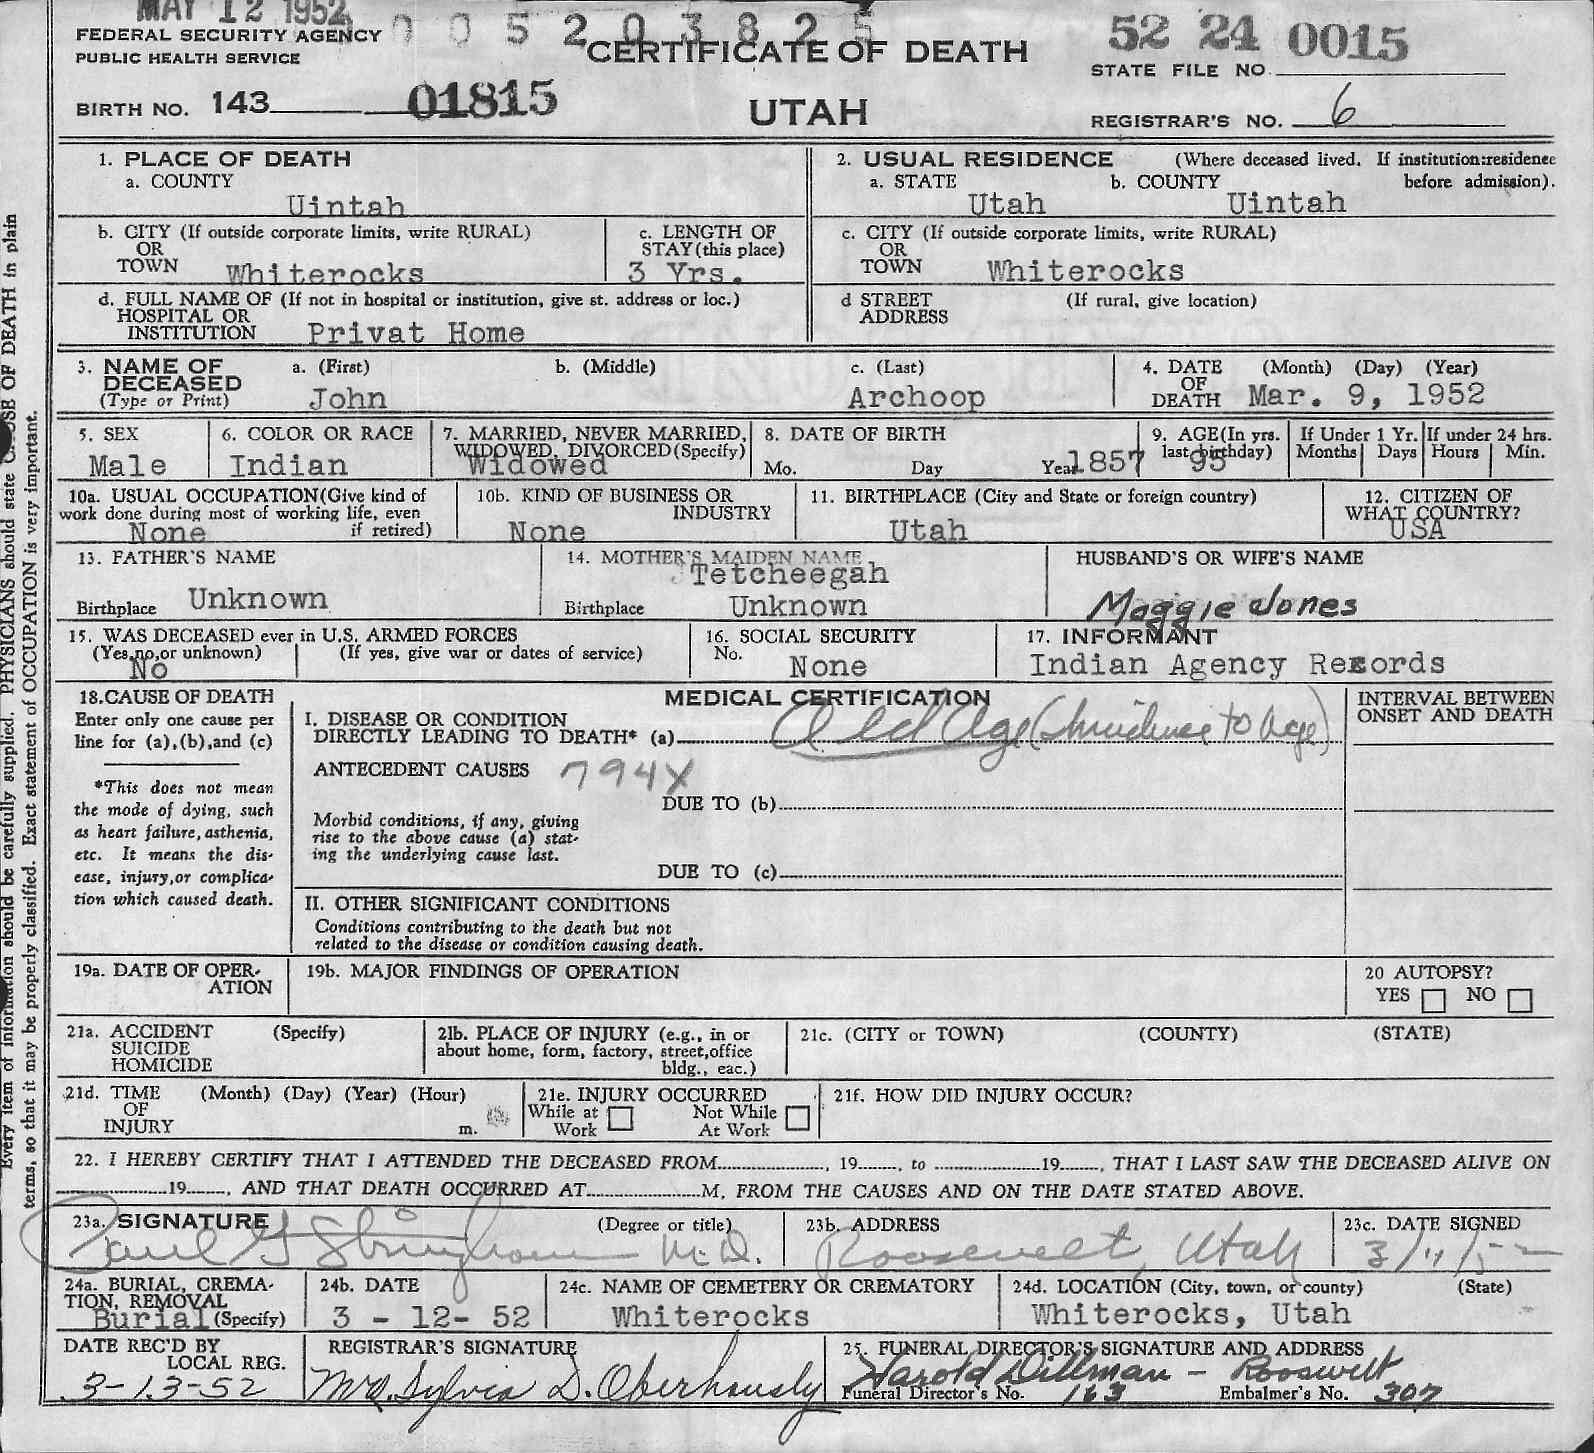 MAY 12 1952
0 0 5 2 0 3 8 2 5
52 24 0015
FEDERAL SECURITY AGENCY
PUBLIC HEALTH SERVICE
CERTIFICATE OF DEATH
STATE FILE NO.
BIRTH NO. 143 01815
UTAH
REGISTRAR'S NO. 6
1. PLACE OF DEATH
a. COUNTY
Uintah
2. USUAL RESIDENCE (Where deceased lived. If institution:residence before admission).
a. STATE b. COUNTY
Utah Uintah
b. CITY (If outside corporate limits, write RURAL)
OR
TOWN Whiterocks
c. LENGTH OF
STAY (this place)
3 Yrs.
c. CITY (If outside corporate limits, write RURAL)
OR
TOWN Whiterocks
d. FULL NAME OF (If not in hospital or institution, give st. address or loc.)
HOSPITAL OR
INSTITUTION Privat Home
d STREET (If rural, give location)
ADDRESS
3. NAME OF DECEASED
(Type or Print)
a. (First) b. (Middle) c. (Last)
John Archoop
4. DATE OF DEATH (Month) (Day) (Year)
Mar. 9, 1952
5. SEX
Male
6. COLOR OR RACE
Indian
7. MARRIED, NEVER MARRIED,
WIDOWED, DIVORCED (Specify)
Widowed
8. DATE OF BIRTH
Mo. Day Year 1857
9. AGE (In yrs. last birthday)
95
If Under 1 Yr.
Months Days
If under 24 hrs.
Hours Min.
10a. USUAL OCCUPATION (Give kind of
work done during most of working life, even
if retired)
None
10b. KIND OF BUSINESS OR
INDUSTRY
None
11. BIRTHPLACE (City and State or foreign country)
Utah
12. CITIZEN OF
WHAT COUNTRY?
USA
13. FATHER'S NAME
Birthplace Unknown
14. MOTHER'S MAIDEN NAME
Tetcheegah
Birthplace Unknown
HUSBAND'S OR WIFE'S NAME
Maggie Jones
15. WAS DECEASED ever in U.S. ARMED FORCES
(Yes, no, or unknown) (If yes, give war or dates of service)
No
16. SOCIAL SECURITY
No.
None
17. INFORMANT
Indian Agency Records
18. CAUSE OF DEATH
Enter only one cause per
line for (a), (b), and (c)
*This does not mean
the mode of dying, such
as heart failure, asthenia,
etc. It means the dis-
ease, injury, or complica-
tion which caused death.
MEDICAL CERTIFICATION
I. DISEASE OR CONDITION
DIRECTLY LEADING TO DEATH* (a) Old Age ( to Age)
ANTECEDENT CAUSES 794X
DUE TO (b)
Morbid conditions, if any, giving
rise to the above cause (a) stat-
ing the underlying cause last.
DUE TO (c)
II. OTHER SIGNIFICANT CONDITIONS
Conditions contributing to the death but not
related to the disease or condition causing death.
INTERVAL BETWEEN
ONSET AND DEATH
19a. DATE OF OPER-
ATION
19b. MAJOR FINDINGS OF OPERATION
20 AUTOPSY?
YES NO
21a. ACCIDENT (Specify)
SUICIDE
HOMICIDE
21b. PLACE OF INJURY (e.g., in or
about home, form, factory, street, office
bldg., eac.)
21c. (CITY or TOWN) (COUNTY) (STATE)
21d. TIME (Month) (Day) (Year) (Hour)
OF
INJURY m.
21e. INJURY OCCURRED
While at Work Not While At Work
21f. HOW DID INJURY OCCUR?
22. I HEREBY CERTIFY THAT I ATTENDED THE DECEASED FROM , 19 , to 19 , THAT I LAST SAW THE DECEASED ALIVE ON
19 , AND THAT DEATH OCCURRED AT M, FROM THE CAUSES AND ON THE DATE STATED ABOVE.
23a. SIGNATURE (Degree or title)
Paul G Stringham M.D.
23b. ADDRESS
Roosevelt, Utah
23c. DATE SIGNED
3/11/52
24a. BURIAL, CREMA-
TION, REMOVAL
Burial (Specify)
24b. DATE
3 - 12- 52
24c. NAME OF CEMETERY OR CREMATORY
Whiterocks
24d. LOCATION (City, town, or county) (State)
Whiterocks, Utah
DATE REC'D BY
LOCAL REG.
3-13-52
REGISTRAR'S SIGNATURE
Mrs. Sylvia D. Oberhansly
25. FUNERAL DIRECTOR'S SIGNATURE AND ADDRESS
Harold Dillman - Roosevelt
Funeral Director's No. 163 Embalmer's No. 307
Every item of information should be carefully supplied. PHYSICIANS should state CAUSE OF DEATH in plain
terms, so that it may be properly classified. Exact statement of OCCUPATION is very important.